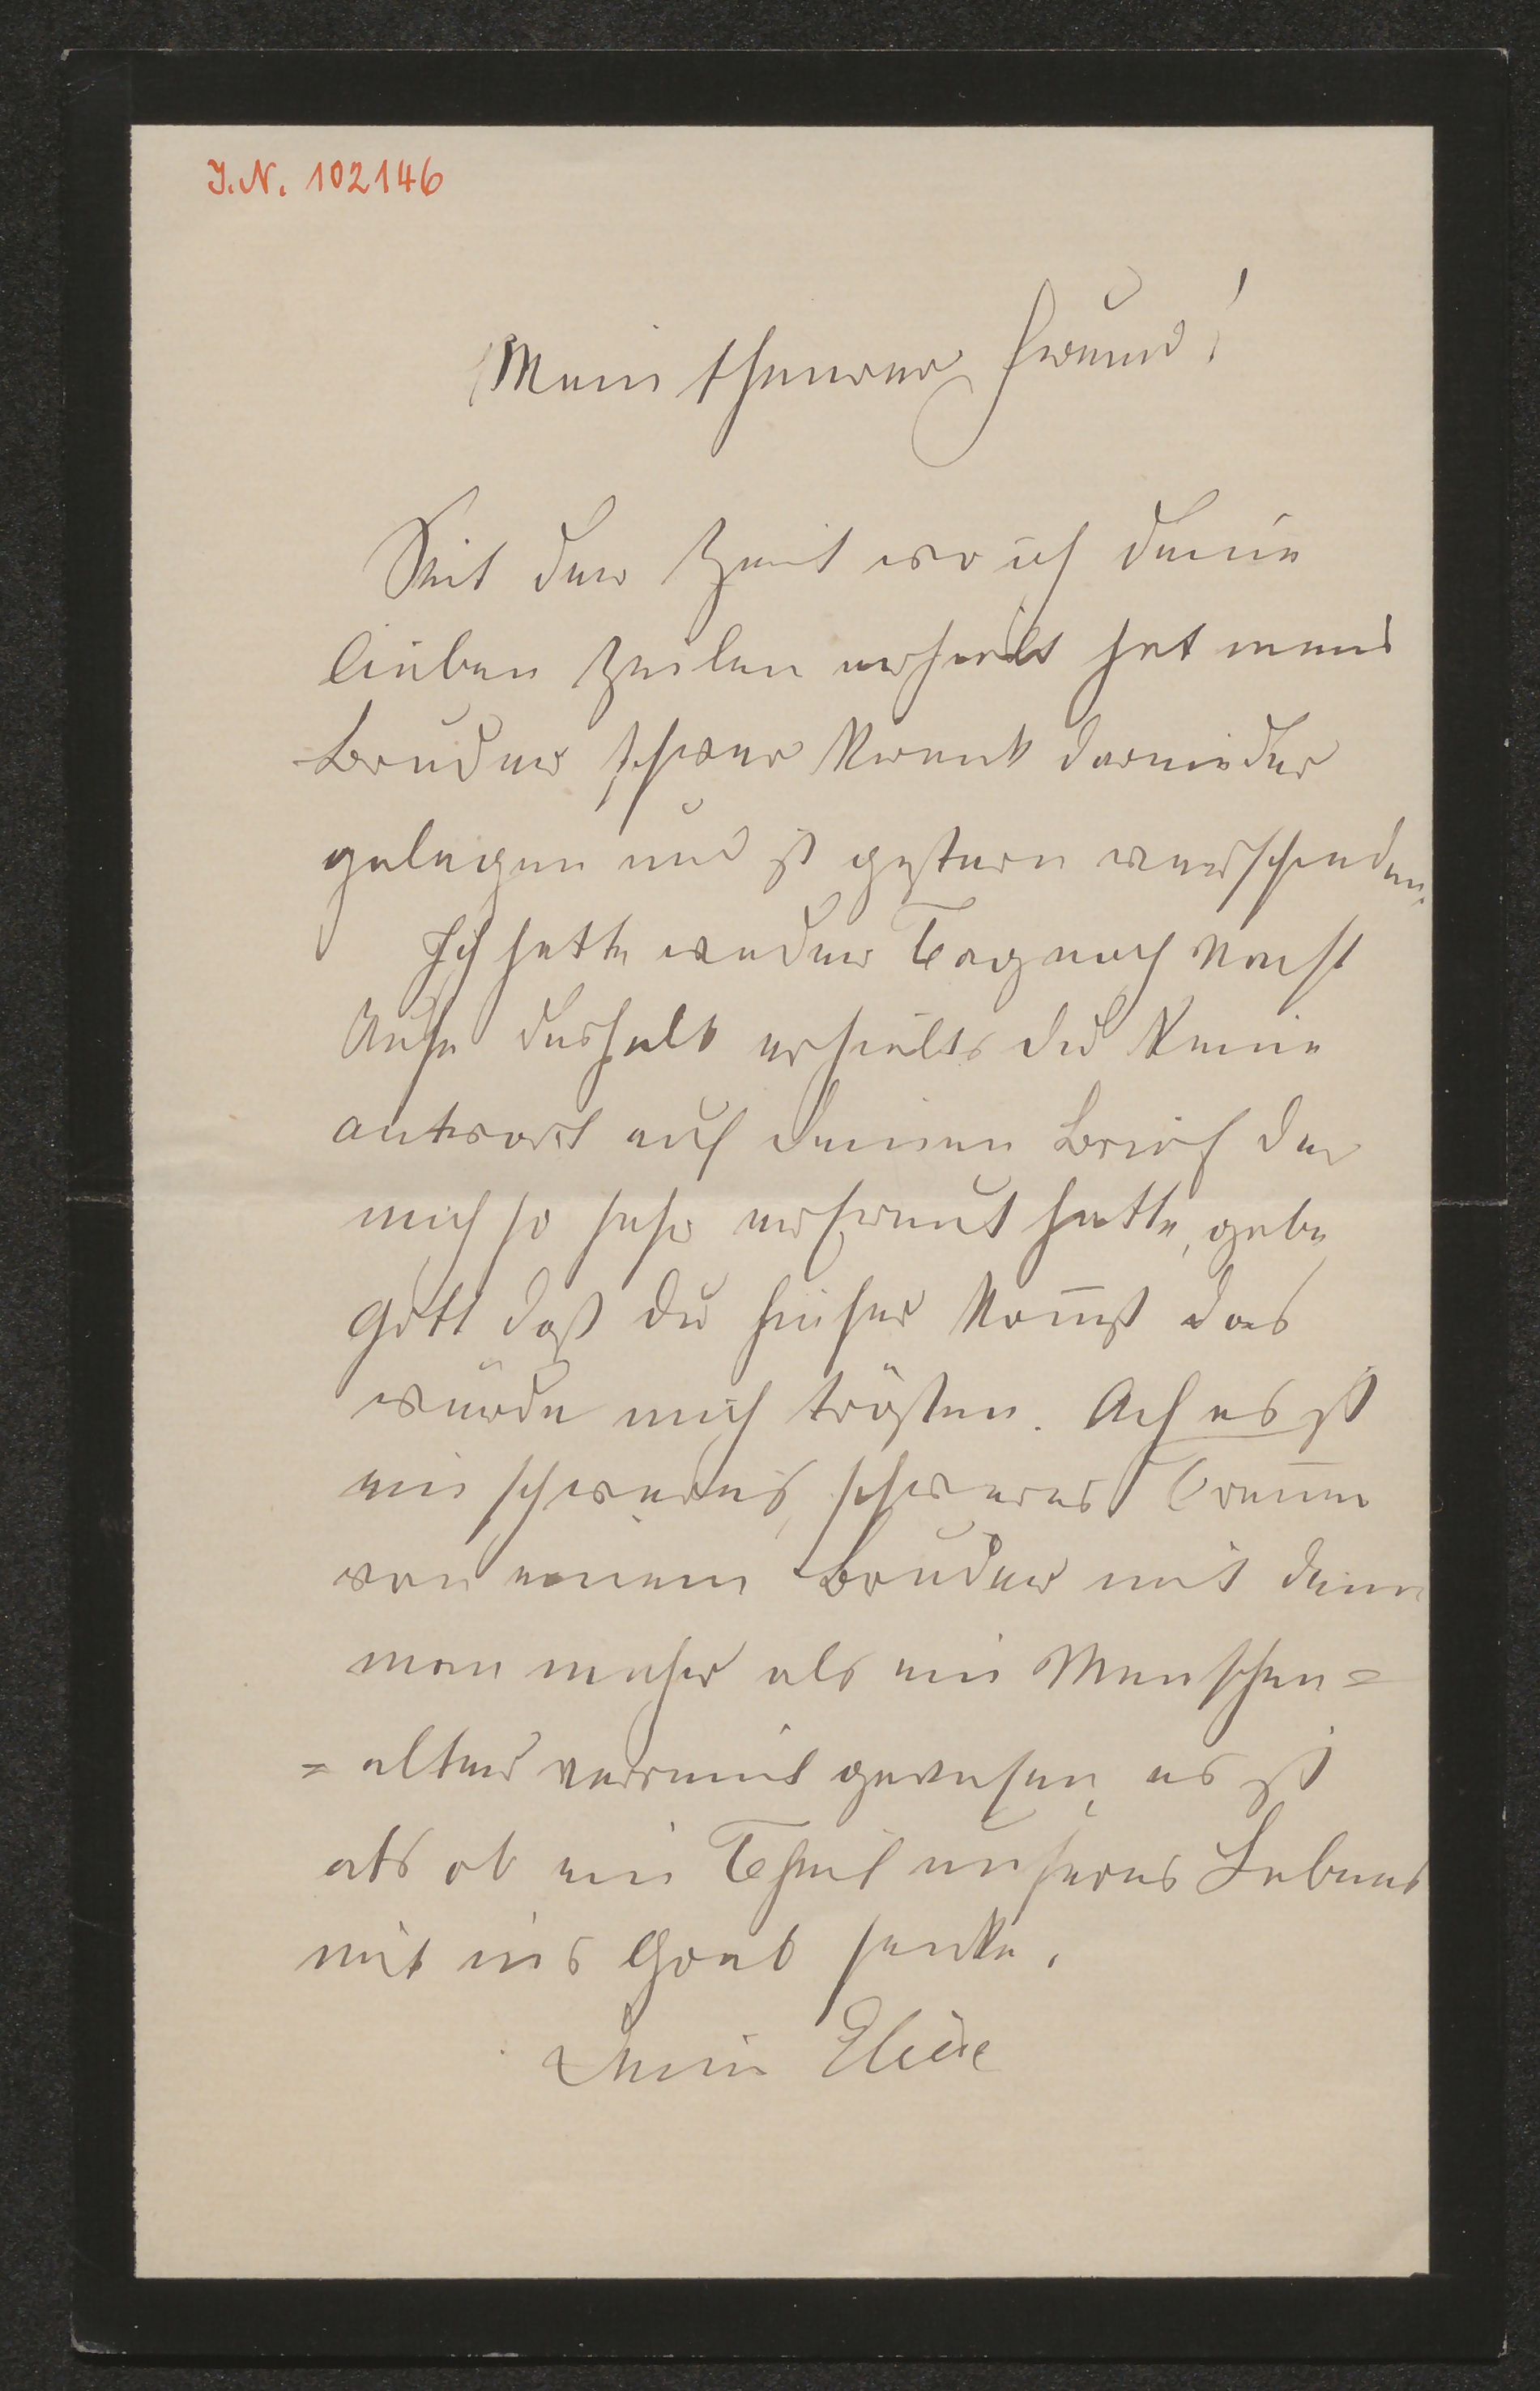 J.N. 102146
Mein theurer Freund!
Seit der Zeit wo ich deine
lieben Zeilen erhielt hat mein
Bruder schwer krank darnieder
gelegen und ist gestern verschieden.
Ich hatte weder Tag noch Nacht
Ruhe deshalb erhielts du keine
antwort auf deinen Brief der
mich so sehr erfreut hatte, gebe
Gott daß du hieher kom̅st das
würde mich trösten. Ach es ist
ein schweres, schweres Tren̅en
von einem Bruder mit dem
man mehr als ein Menschen=
=alter vereint gewesen, es ist
als ob ein Theil unseres Lebens
mit ins Grab sinke.
Deine Elise